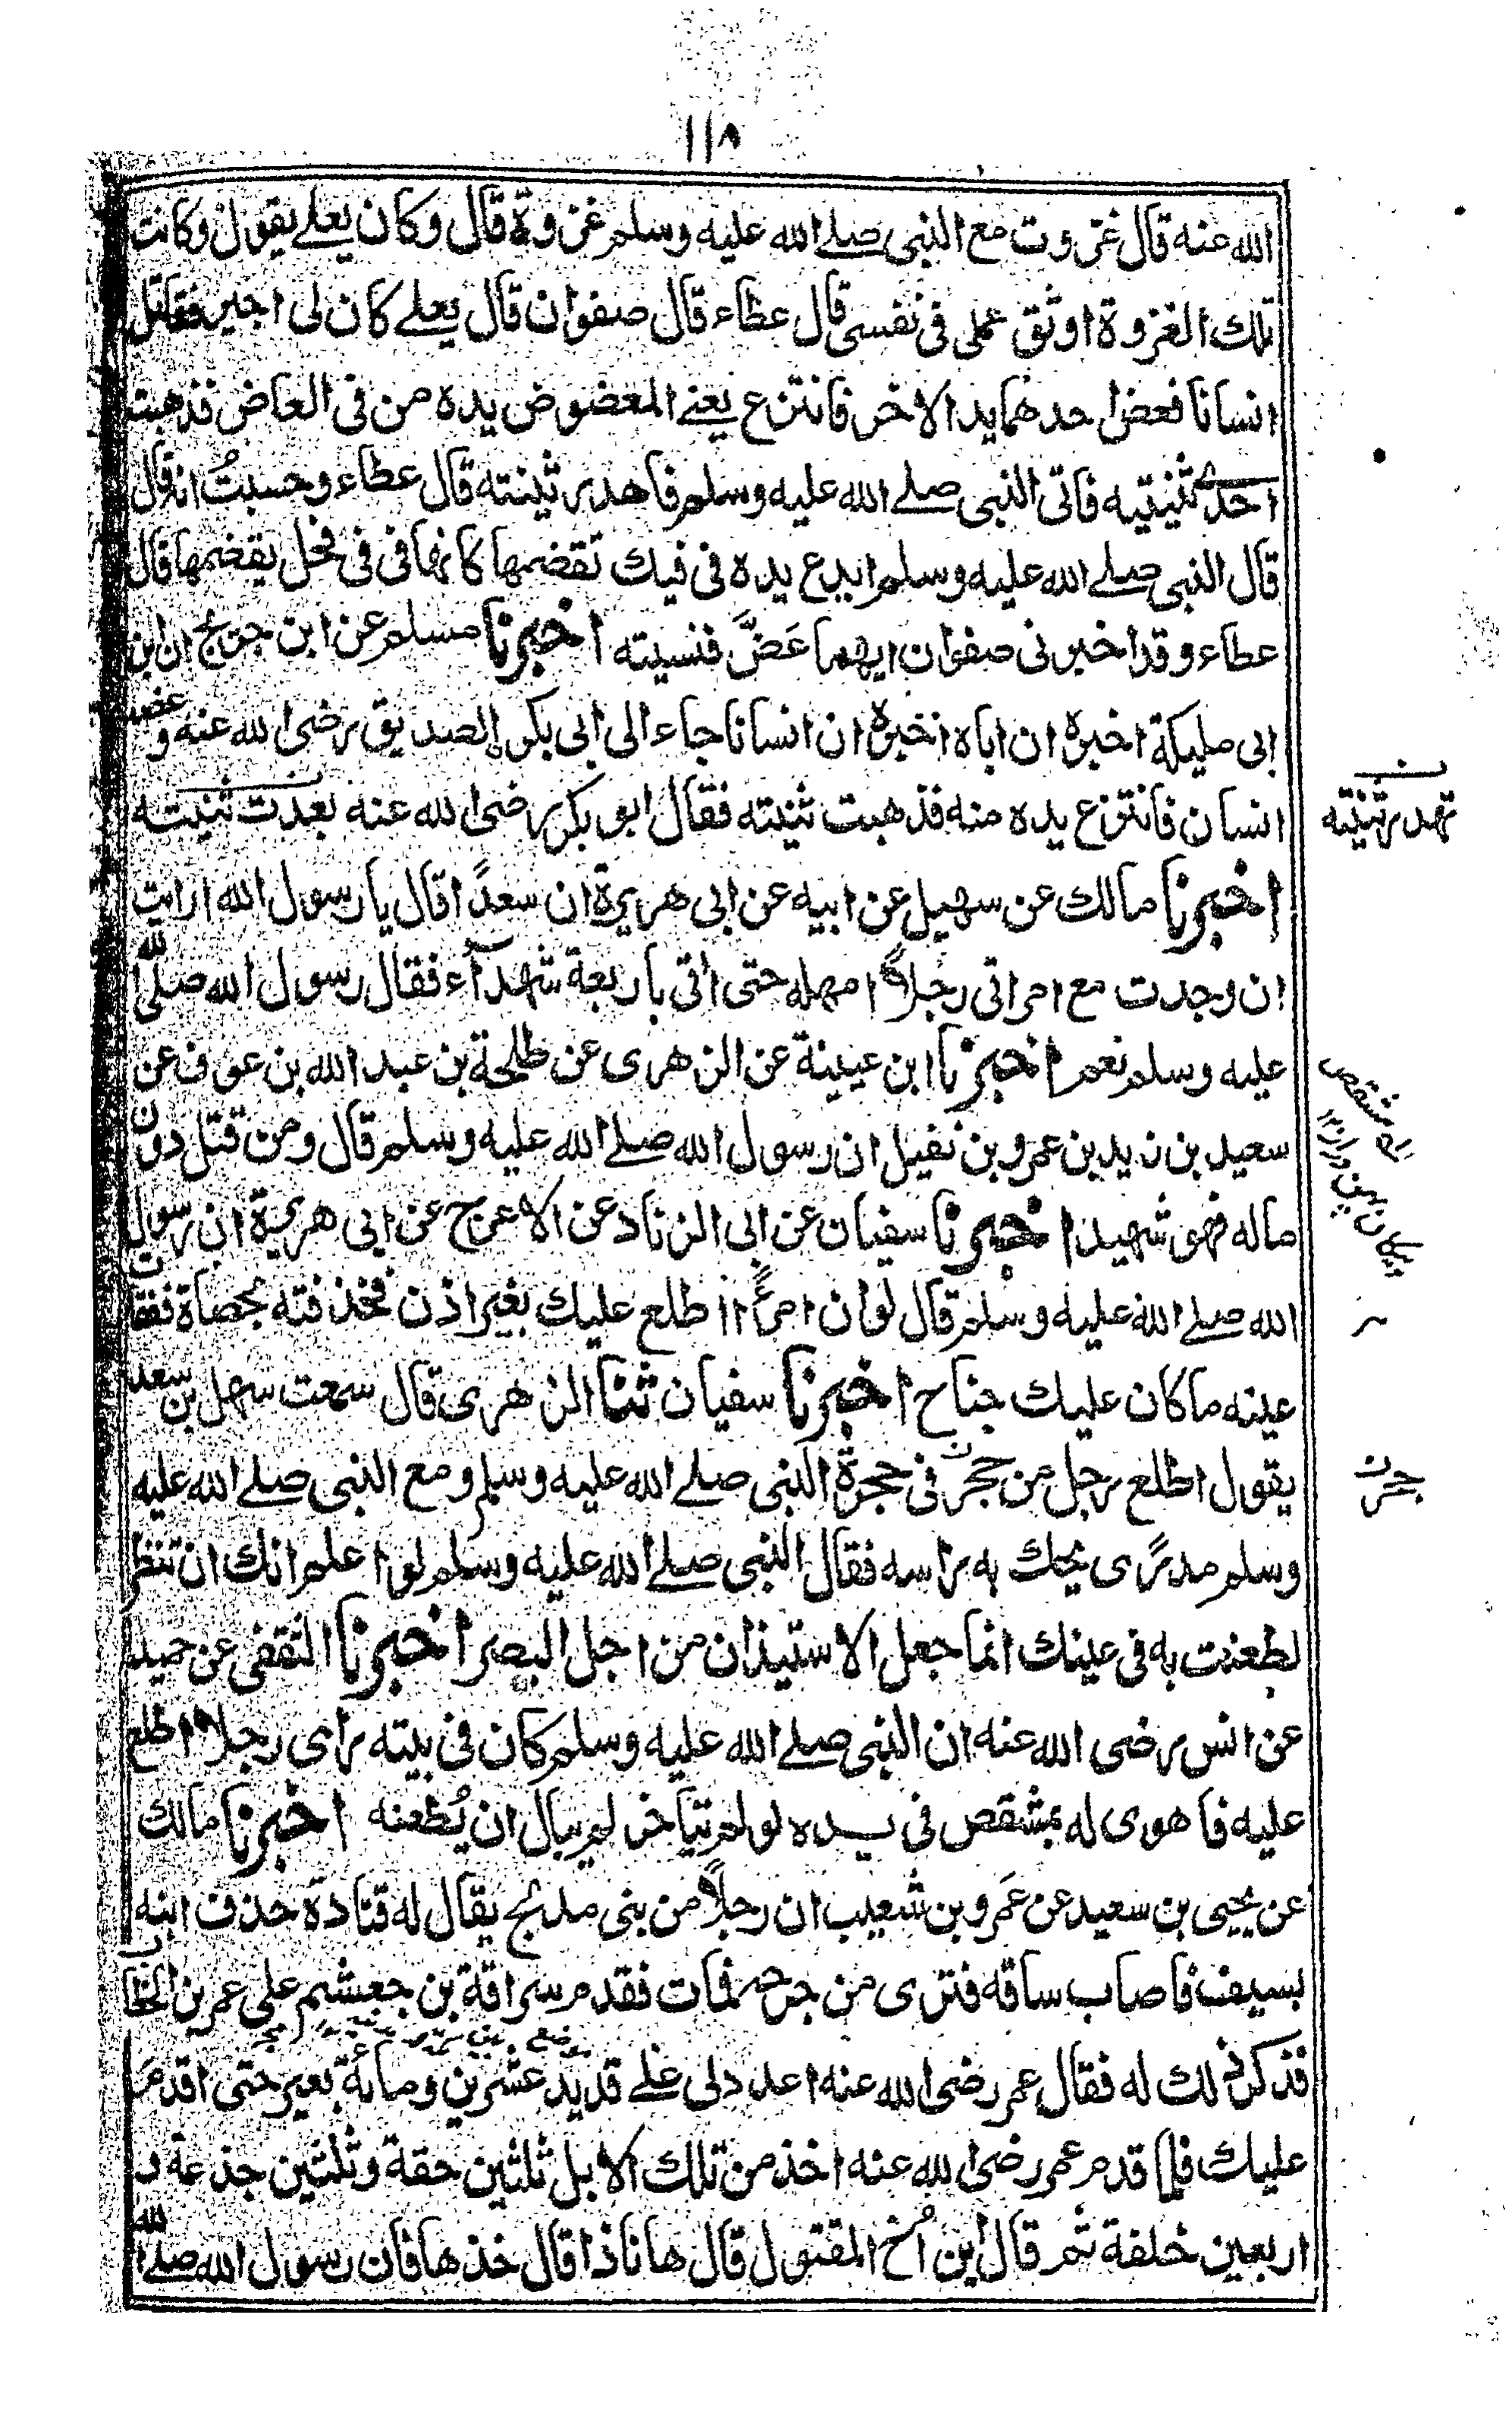 ١١٨
الله عنه قال غزوت مع النبى صلے الله عليه وسلم غزوة قال وكان يعلے يقول وكانت
تلك الغزوة اوثق عملى فى نفسى قال عطاء قال صفوان قال يعلے كان لى اجير فقاتل
انسانا فعض احدهما يد الاخر فانتزع يعنے المعضوض يده من فى العاض فذهبت
احدے ثنيتيه فاتى النبى صلے الله عليه وسلم فاهدر ثنيته قال عطاء وحسبتُ انه قال
قال النبى صلے الله عليه وسلم ايدع يده فى فيك تقضمها كانها فى فى فحل يقضمها قال
عطاء وقد اخبرنى صفوان ايهما عَضَّ فنسيته اخبرنا مسلم عن ابن جريج ان ابن
ابى مليكة اخبره ان اباه اخبره ان انسانا جاء الى ابى بكر الصديق رضى الله عنه وعضه
انسان فانتزع يده منه فذهبت ثنيته فقال ابو بكر رضى الله عنه بعدت ثنيته
تهدر ثنيته
اخبرنا مالك عن سهيل عن ابيه عن ابى هريرة ان سعدًا قال يا رسول الله ارايت
ان وجدت مع امراتى رجلاً امهله حتى اتى باربعة شهدآء فقال رسول الله صلى الله
عليه وسلم نعم اخبرنا ابن عيينة عن الزهرى عن طلحة بن عبد الله بن عوف عن
سعيد بن زيد بن عمرو بن نفيل ان رسول الله صلے الله عليه وسلم قال ومن قتل دون
ماله فهو شهيد اخبرنا سفيان عن ابى الزناد عن الاعرج عن ابى هريرة ان رسول
الله صلے الله عليه وسلم قال لو ان امرءًا اطلع عليك بغير اذن فخذفته بحصاة ففقات
عينه ما كان عليك جناح اخبرنا سفيان ثنا الزهرى قال سمعت سهل بن سعد
يقول اطلع رجل من حجر فى حجرة النبى صلے الله عليه وسلم ومع النبى صلے الله عليه
وسلم مدرًى يحك به راسه فقال النبى صلے الله عليه وسلم لو اعلم انك ان تنظر
لطعنت به فى عينك انما جعل الاستيذان من اجل البصر اخبرنا الثقفى عن حميد
عن انس رضى الله عنه ان النبى صلے الله عليه وسلم كان فى بيته راى رجلا اطلع
عليه فاهوى له بمشقص فى يده لو لم يتاخر لم يبال ان يُطعنه اخبرنا مالك
عن يحيى بن سعيد عن عَمرو بن شعيب ان رجلاً من بنى مدلج يقال له قتادة حذف ابنه
بسيف فاصاب ساقه فنزى من جرحه فمات فقدم سراقة بن جعشم على عمر بن الخطاب
فذكر ذلك له فقال عمر رضى الله عنه اعدد لى علے قديد عشرين ومائة بعير حتى اقدم
عليك فلما قدم عمر رضى الله عنه اخذ من تلك الابل ثلثين حقة وثلثين جذعة و
اربعين خلفة ثم قال اين اُخ المقتول قال ها ناذا قال خذها فان رسول الله صلے الله